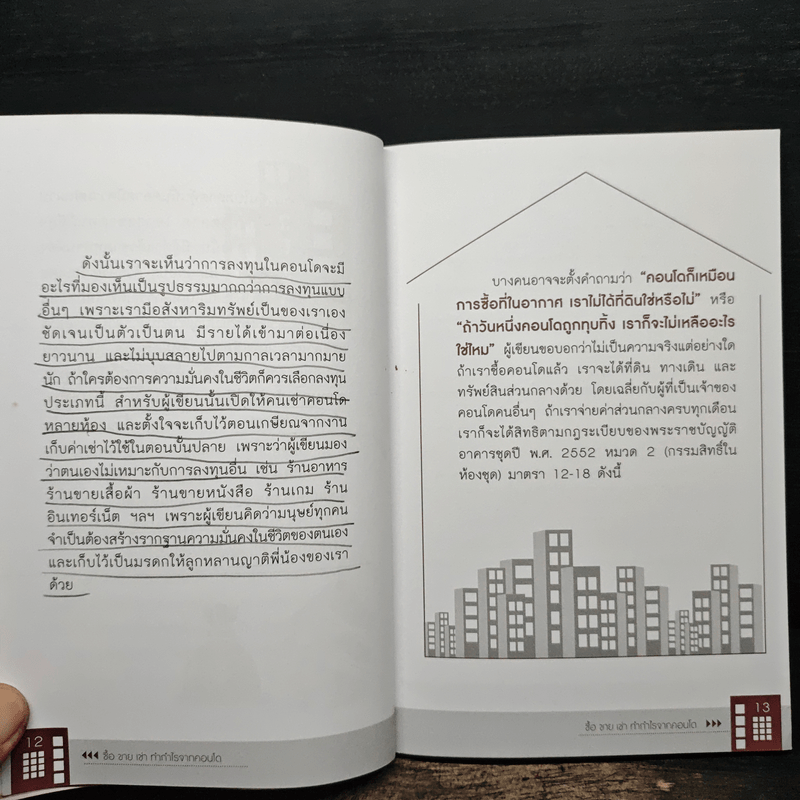 ดังนั้นเราจะเห็นว่าการลงทุนในคอนโดจะมี
อะไรที่มองเห็นเป็นรูปธรรมมากกว่าการลงทุนแบบ
อื่นๆ เพราะเรามีอสังหาริมทรัพย์เป็นของเราเอง
ชัดเจนเป็นตัวเป็นตน มีรายได้เข้ามาต่อเนื่อง
ยาวนาน และไม่บุบสลายไปตามกาลเวลามากมาย
นัก ถ้าใครต้องการความมั่นคงในชีวิตก็ควรเลือกลงทุน
ประเภทนี้ สำหรับผู้เขียนนั้นเปิดให้คนเช่าคอนโด
หลายห้อง และตั้งใจจะเก็บไว้ตอนเกษียณจากงาน
เก็บค่าเช่าไว้ใช้ในตอนบั้นปลาย เพราะว่าผู้เขียนมอง
ว่าตนเองไม่เหมาะกับการลงทุนอื่น เช่น ร้านอาหาร
ร้านขายเสื้อผ้า ร้านขายหนังสือ ร้านเกม ร้าน
อินเทอร์เน็ต ฯลฯ เพราะผู้เขียนคิดว่ามนุษย์ทุกคน
จำเป็นต้องสร้างรากฐานความมั่นคงในชีวิตของตนเอง
และเก็บไว้เป็นมรดกให้ลูกหลานญาติพี่น้องของเรา
ด้วย
12
ซื้อ ขาย เช่า ทำกำไรจากคอนโด
บางคนอาจจะตั้งคำถามว่า “คอนโดก็เหมือน
การซื้อที่ในอากาศ เราไม่ได้ที่ดินใช่หรือไม่” หรือ
“ถ้าวันหนึ่งคอนโดถูกทุบทิ้ง เราก็จะไม่เหลืออะไร
ใช่ไหม” ผู้เขียนขอบอกว่าไม่เป็นความจริงแต่อย่างใด
ถ้าเราซื้อคอนโดแล้ว เราจะได้ที่ดิน ทางเดิน และ
ทรัพย์สินส่วนกลางด้วย โดยเฉลี่ยกับผู้ที่เป็นเจ้าของ
คอนโดคนอื่นๆ ถ้าเราจ่ายค่าส่วนกลางครบทุกเดือน
เราก็จะได้สิทธิตามกฎระเบียบของพระราชบัญญัติ
อาคารชุดปี พ.ศ. 2552 หมวด 2 (กรรมสิทธิ์ใน
ห้องชุด) มาตรา 12-18 ดังนี้
ซื้อ ขาย เช่า ทำกำไรจากคอนโด
13